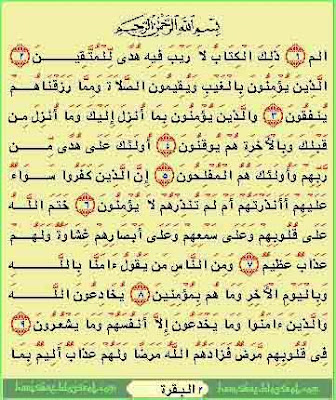 بِسْمِ اللَّهِ الرَّحْمَٰنِ الرَّحِيمِ
الم ١ ذَلِكَ الْكِتَابُ لَا رَيْبَ فِيهِ هُدًى لِّلْمُتَّقِينَ ٢
الَّذِينَ يُؤْمِنُونَ بِالْغَيْبِ وَيُقِيمُونَ الصَّلَاةَ وَمِمَّا رَزَقْنَاهُمْ
يُنفِقُونَ ٣ وَالَّذِينَ يُؤْمِنُونَ بِمَا أُنزِلَ إِلَيْكَ وَمَا أُنزِلَ مِن
قَبْلِكَ وَبِالْآخِرَةِ هُمْ يُوقِنُونَ ٤ أُولَئِكَ عَلَى هُدًى مِّن
رَّبِّهِمْ وَأُولَئِكَ هُمُ الْمُفْلِحُونَ ٥ إِنَّ الَّذِينَ كَفَرُوا سَوَاءٌ
عَلَيْهِمْ أَأَنذَرْتَهُمْ أَمْ لَمْ تُنذِرْهُمْ لَا يُؤْمِنُونَ ٦ خَتَمَ اللَّهُ
عَلَى قُلُوبِهِمْ وَعَلَى سَمْعِهِمْ وَعَلَى أَبْصَارِهِمْ غِشَاوَةٌ وَلَهُمْ
عَذَابٌ عَظِيمٌ ٧ وَمِنَ النَّاسِ مَن يَقُولُ ءَامَنَّا بِاللَّهِ
وَبِالْيَوْمِ الْآخِرِ وَمَا هُم بِمُؤْمِنِينَ ٨ يُخَادِعُونَ اللَّهَ
وَالَّذِينَ ءَامَنُوا وَمَا يَخْدَعُونَ إِلَّا أَنفُسَهُمْ وَمَا يَشْعُرُونَ ٩
فِى قُلُوبِهِم مَّرَضٌ فَزَادَهُمُ اللَّهُ مَرَضًا وَلَهُمْ عَذَابٌ أَلِيمٌ بِمَا
٢ البقرة